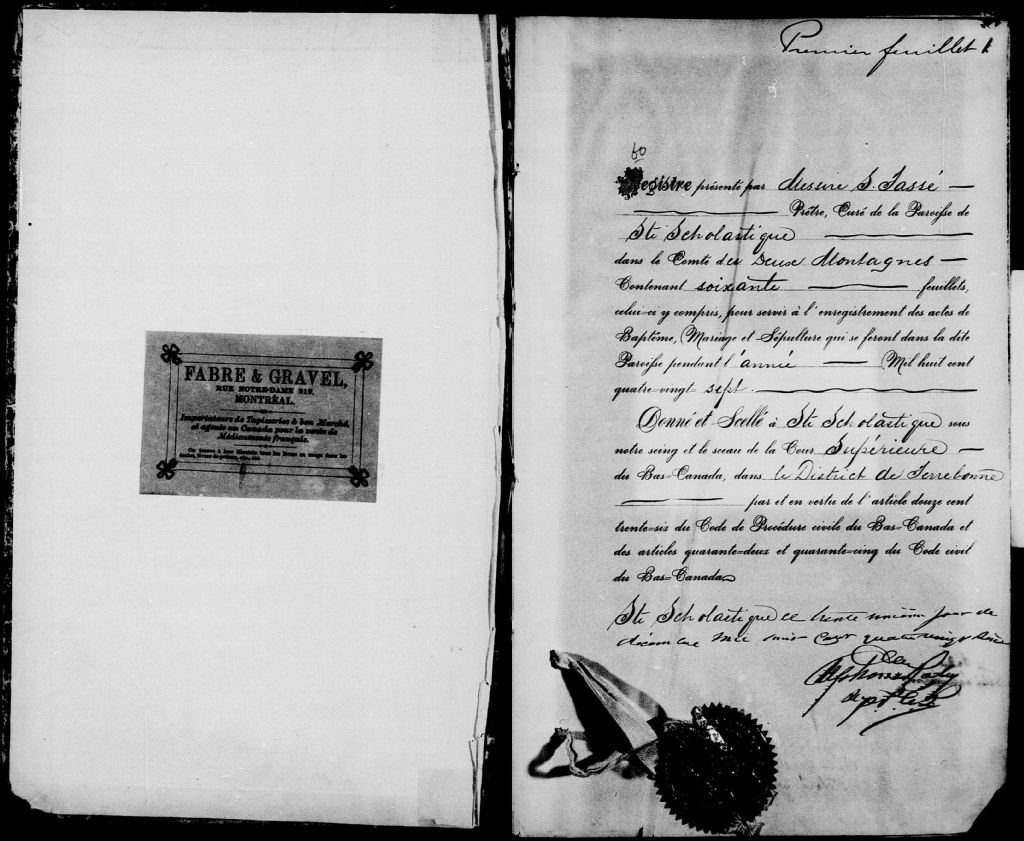 FABRE & GRAVEL,
RUE NOTRE-DAME 219,
MONTRÉAL.
Importateurs de Tapisseries à bon Marché,
et agents au Canada pour la vente de
Médicaments français.
Premier feuillet 1
60
Registre présenté par Messire S. Tassé
Prêtre, Curé de la Paroisse de
Ste Scholastique
dans le Comté des Deux Montagnes
Contenant soixante feuillets,
celui-ci y compris, pour servir à l'enregistrement des actes de
Baptême, Mariage et Sépulture qui se feront dans la dite
Paroisse pendant l'année Mil huit cent
quatre-vingt sept.
Donné et Scellé à Ste Scholastique sous
notre seing et le sceau de la Cour Supérieure
du Bas-Canada, dans le District de Terrebonne
par et en vertu de l'article douze cent
trente-six du Code de Procédure civile du Bas-Canada et
des articles quarante-deux et quarante-cinq du Code civil
du Bas-Canada
Ste Scholastique ce trente unième jour de
décembre mil huit cent quatre vingt
Alphonse